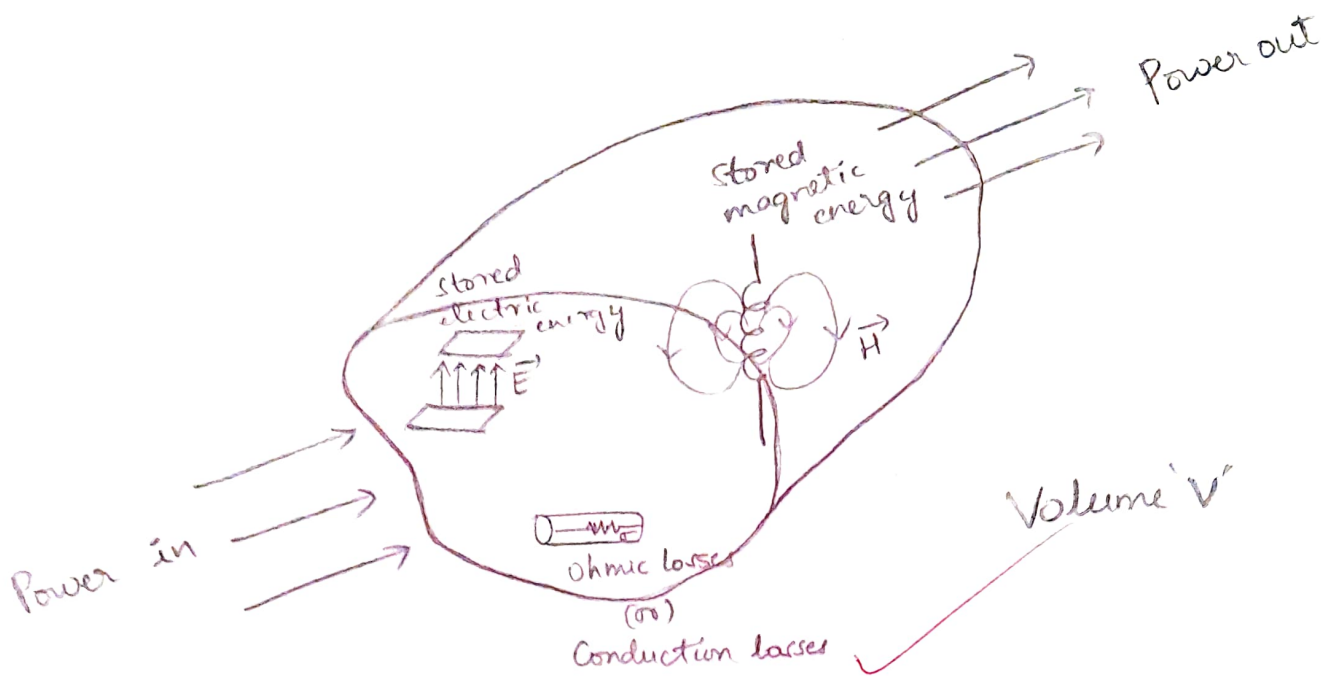 Power out
stored
magnetic
energy
stored
electric
energy
E
H
Power in
Volume 'V'
σ
ohmic losses
(or)
Conduction losses